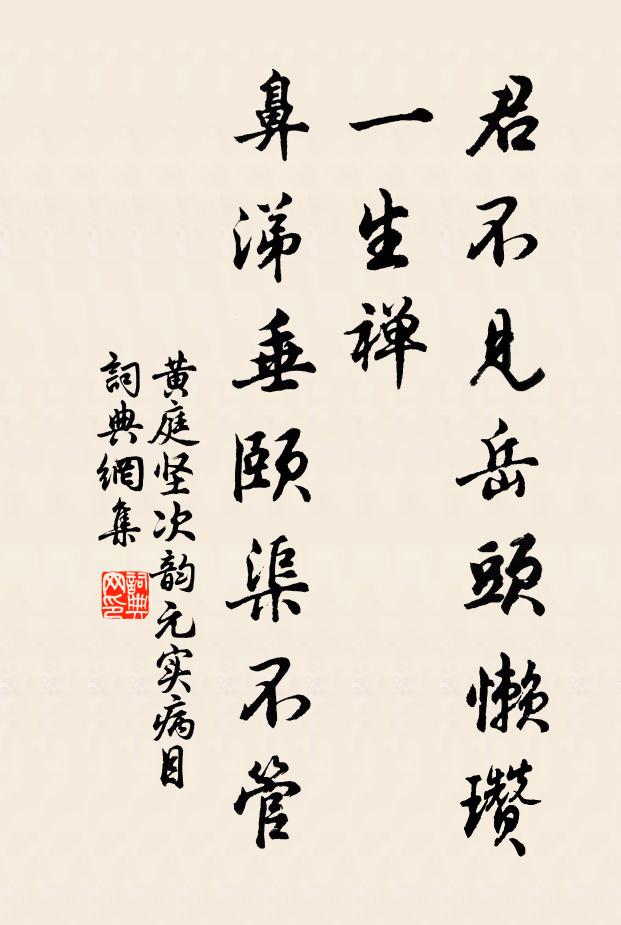 君不见岳頭懒瓒
一生禅
鼻涕垂颐渠不管
黄庭坚次韵元实病目
詞典網集
詞典网印